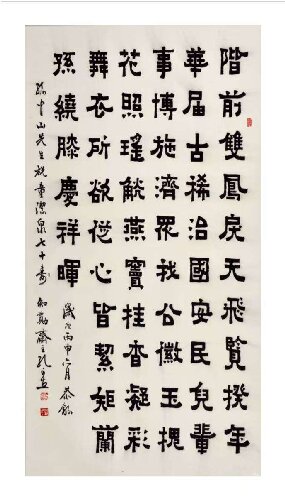 階前雙鳳戾天飛覽揆年
華届古稀治國安民兒輩
事博施濟眾我公徽玉槐
花照瑤觥燕竇桂香凝彩
舞衣所欲從心皆絜矩蘭
孫繞膝慶祥暉
歲次丙申月恭錄
孫中山先生祝童潔泉七十壽